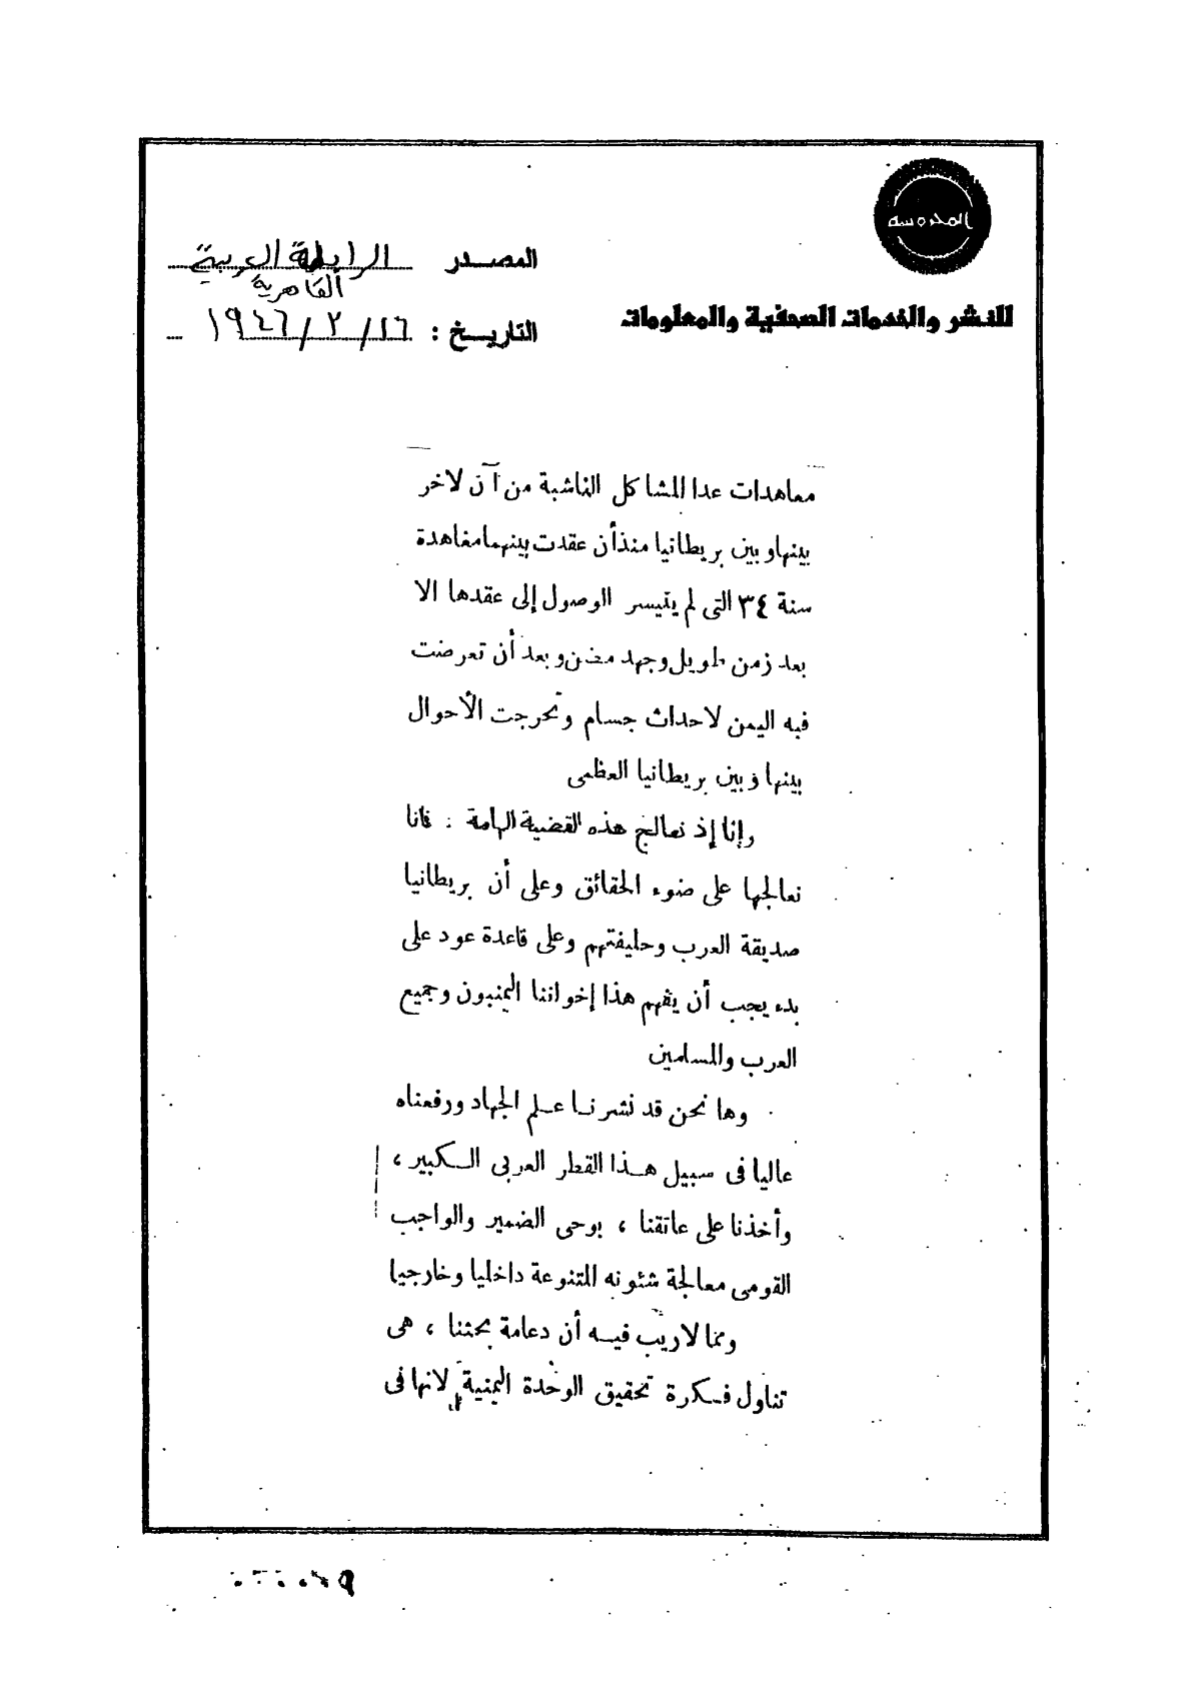 المحروسة
للنشر والخدمات الصحفية والمعلومات
المصدر الرابطة العربية
القاهرية
التاريخ : ١٦/٢/١٩٤٦
معاهدات عدا المشاكل الناشبة من آن لاخر
بينها وبين بريطانيا منذ أن عقدت بينهما معاهدة
سنة ٣٤ التى لم يتيسر الوصول إلى عقدها الا
بعد زمن طويل وجهد مضن وبعد أن تعرضت
فيه اليمن لاحداث جسام وتحرجت الأحوال
بينها وبين بريطانيا العظمى
وإنا إذ نعالج هذه القضية الهامة . فانا
نعالجها على ضوء الحقائق وعلى أن بريطانيا
صديقة العرب وحليفتهم وعلى قاعدة عود على
بدء يجب أن يفهم هذا إخواننا اليمنيون وجميع
العرب والمسلمين
وها نحن قد نشرنا علم الجهاد ورفعناه
عاليا فى سبيل هذا القطر العربى الكبير ،
وأخذنا على عاتقنا ، بوحى الضمير والواجب
القومى معالجة شئونه المتنوعة داخليا وخارجيا
ومما لاريب فيه أن دعامة بحثنا ، هى
تناول فكرة تحقيق الوحدة اليمنية لانها فى